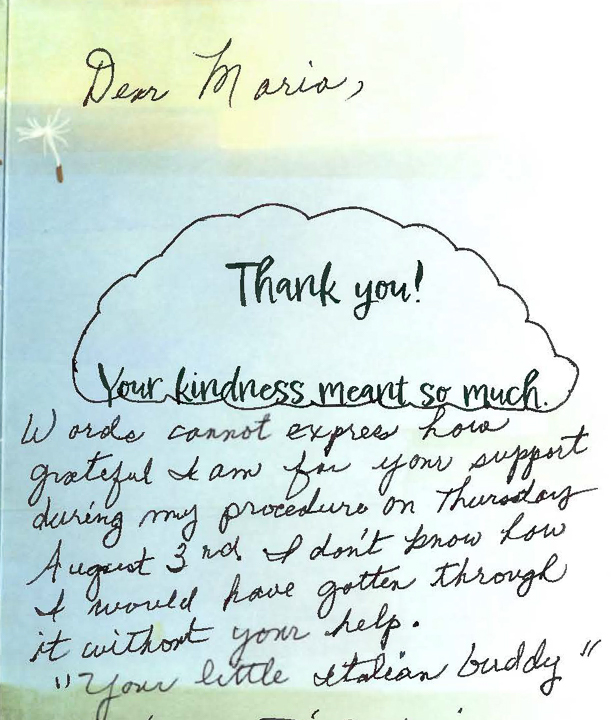 Dear Maria,
Thank you!
Your kindness meant so much.
Words cannot express how
grateful I am for your support
during my procedure on Thursday
August 3nd. I don't know how
I would have gotten through
it without your help.
"Your little Italian buddy"